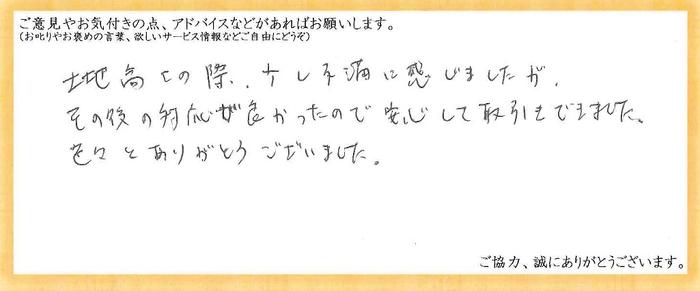 ご意見やお気付きの点、アドバイスなどがあればお願いします。
(お叱りやお褒めの言葉、欲しいサービス情報などご自由にどうぞ)
土地高上の際、少し不満に感じましたが、
その後の対応が良かったので安心して取引きできました。
色々とありがとうございました。
ご協力、誠にありがとうございます。